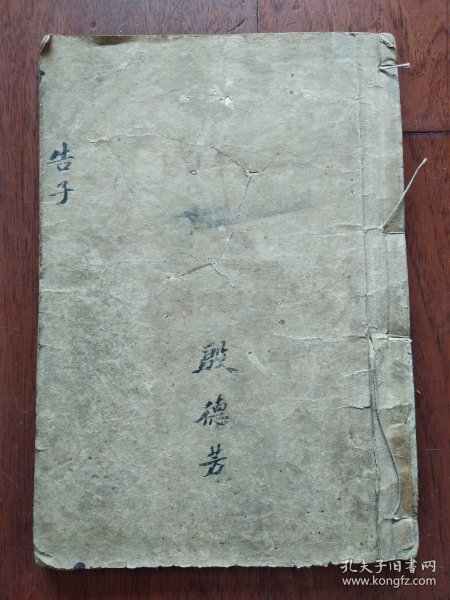 告子
殷德芳
孔夫子旧书网
www.kongfz.com